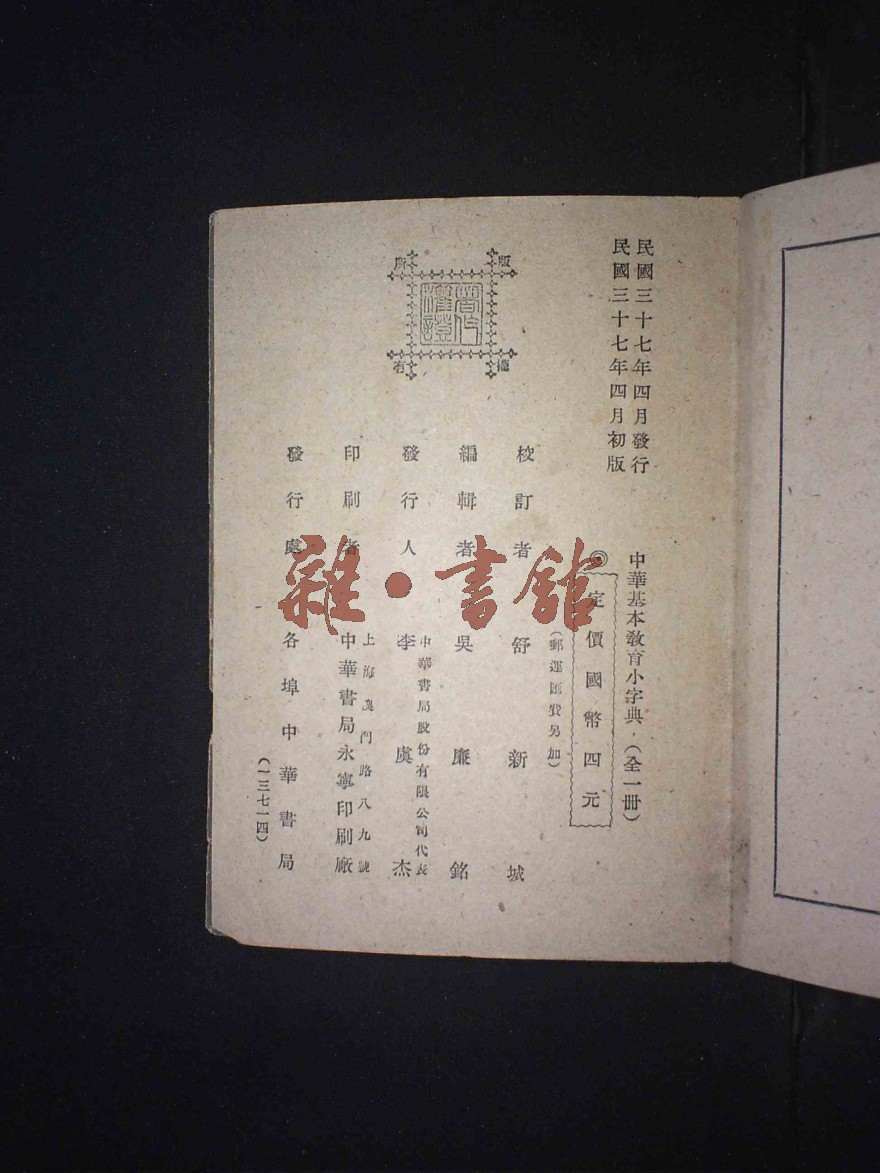 民國三十七年四月發行
民國三十七年四月初版
中華基本教育小字典（全一冊）
定價國幣四元
（郵運匯費另加）
校訂者 舒新城
編輯者 吳廉銘
發行人 中華書局股份有限公司代表
李虞杰
印刷者 上海澳門路八九號
中華書局永寧印刷廠
發行處 各埠中華書局
（一三七一四）
版權所有
雜·書館